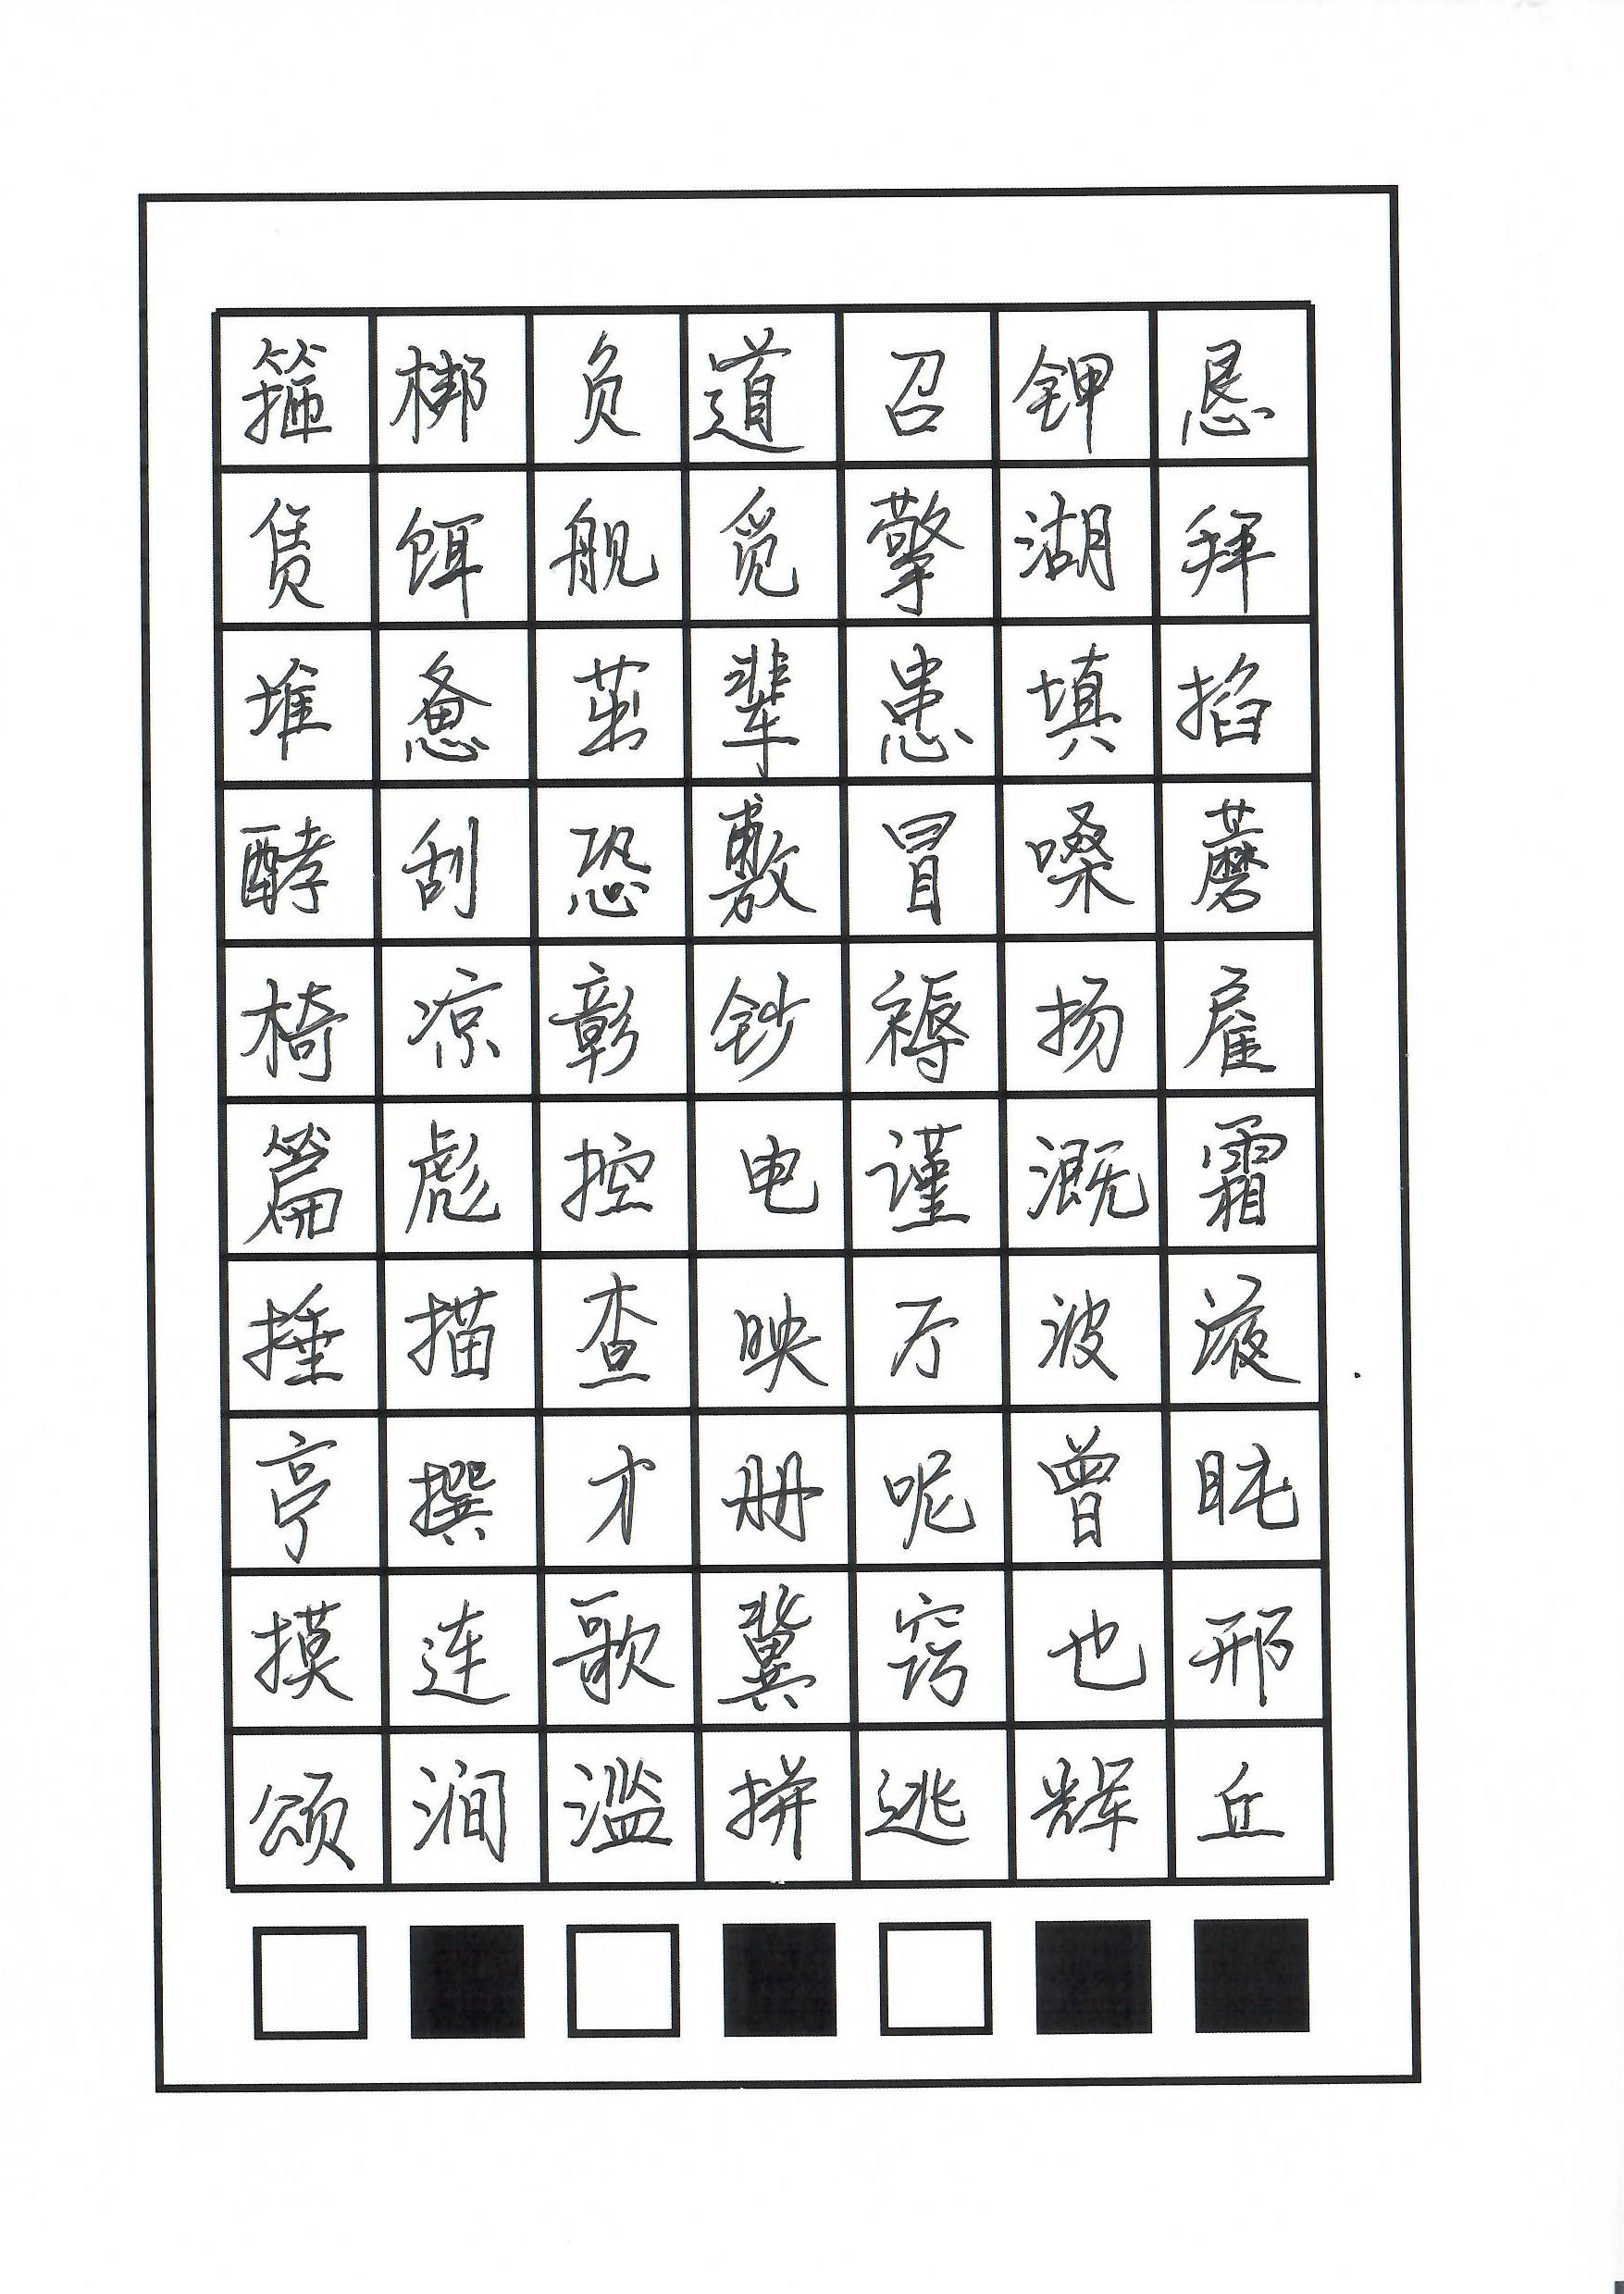 箍梆负道召钾恳
赁饵舰觅擎湖拜
堆惫茁辈患填掐
酵刮恐敷冒嗓蘑
椅凉彰钞褥扬雇
篇彪控电谨溉霜
捶描查映万波液
亨撰才册呢曾盹
摸连歌冀窍也邢
颂涧滥拼逃辉丘